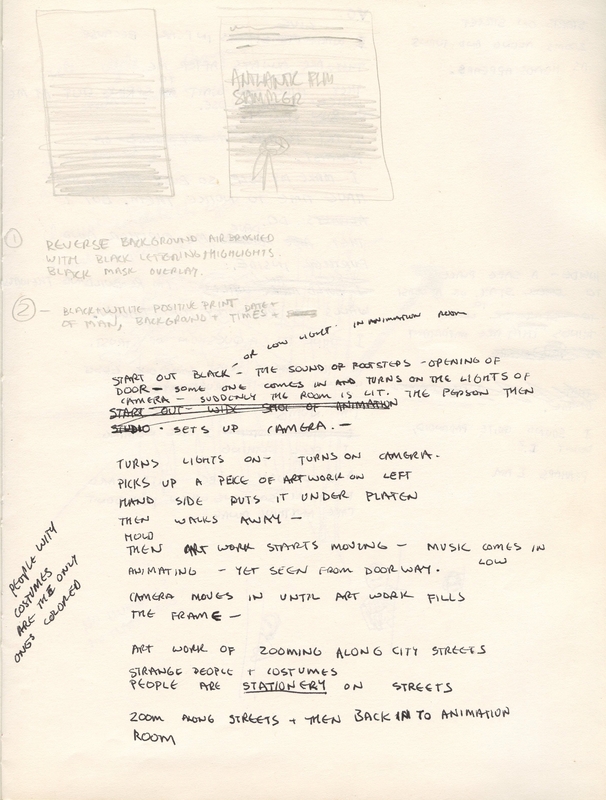 ANTLANTIC FILM
SAMPLER
1 REVERSE BACKGROUND AIRBRUSHED
WITH BLACK LETTERING/HIGHLIGHTS.
BLACK MASK OVERLAY.
2 - BLACK+WHITE POSITIVE PRINT DATE+
OF MAN, BACKGROUND + TIMES +
OR LOW LIGHT. IN ANIMATION ROOM
START OUT BLACK - THE SOUND OF FOOTSTEPS - OPENING OF
DOOR - SOME ONE COMES IN AND TURNS ON THE LIGHTS OF
CAMERA - SUDDENLY THE ROOM IS LIT. THE PERSON THEN
START OUT - WIDE SHOT OF ANIMATION
STUDIO. SETS UP CAMERA. -
TURNS LIGHTS ON - TURNS ON CAMERA.
PICKS UP A PEICE OF ARTWORK ON LEFT
HAND SIDE PUTS IT UNDER PLATEN
THEN WALKS AWAY -
HOLD
THEN ART WORK STARTS MOVING - MUSIC COMES IN
LOW
ANIMATING - YET SEEN FROM DOORWAY.
CAMERA MOVES IN UNTIL ART WORK FILLS
THE FRAME -
PEOPLE WITH
COSTUMES
ARE THE ONLY
ONES COLORED
ART WORK OF ZOOMING ALONG CITY STREETS
STRANGE PEOPLE + COSTUMES
PEOPLE ARE STATIONERY ON STREETS
ZOOM ALONG STREETS + THEN BACK IN TO ANIMATION
ROOM